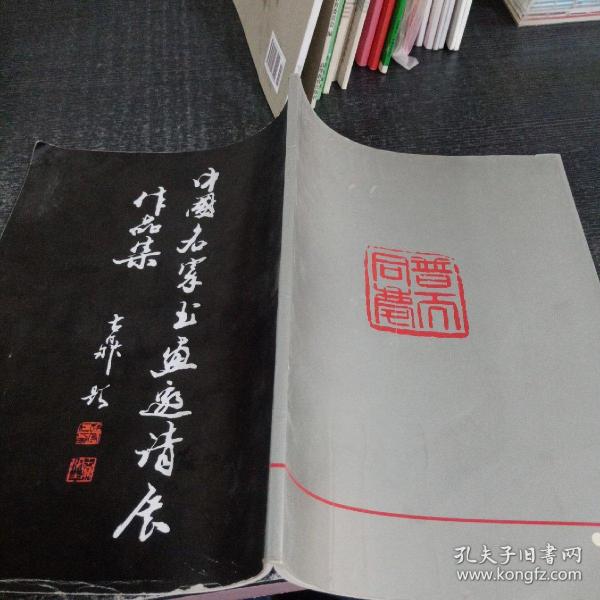 中國名家书画邀请展
作品集
士鼎题
普天同慶
孔夫子旧書网
www.kongfz.com